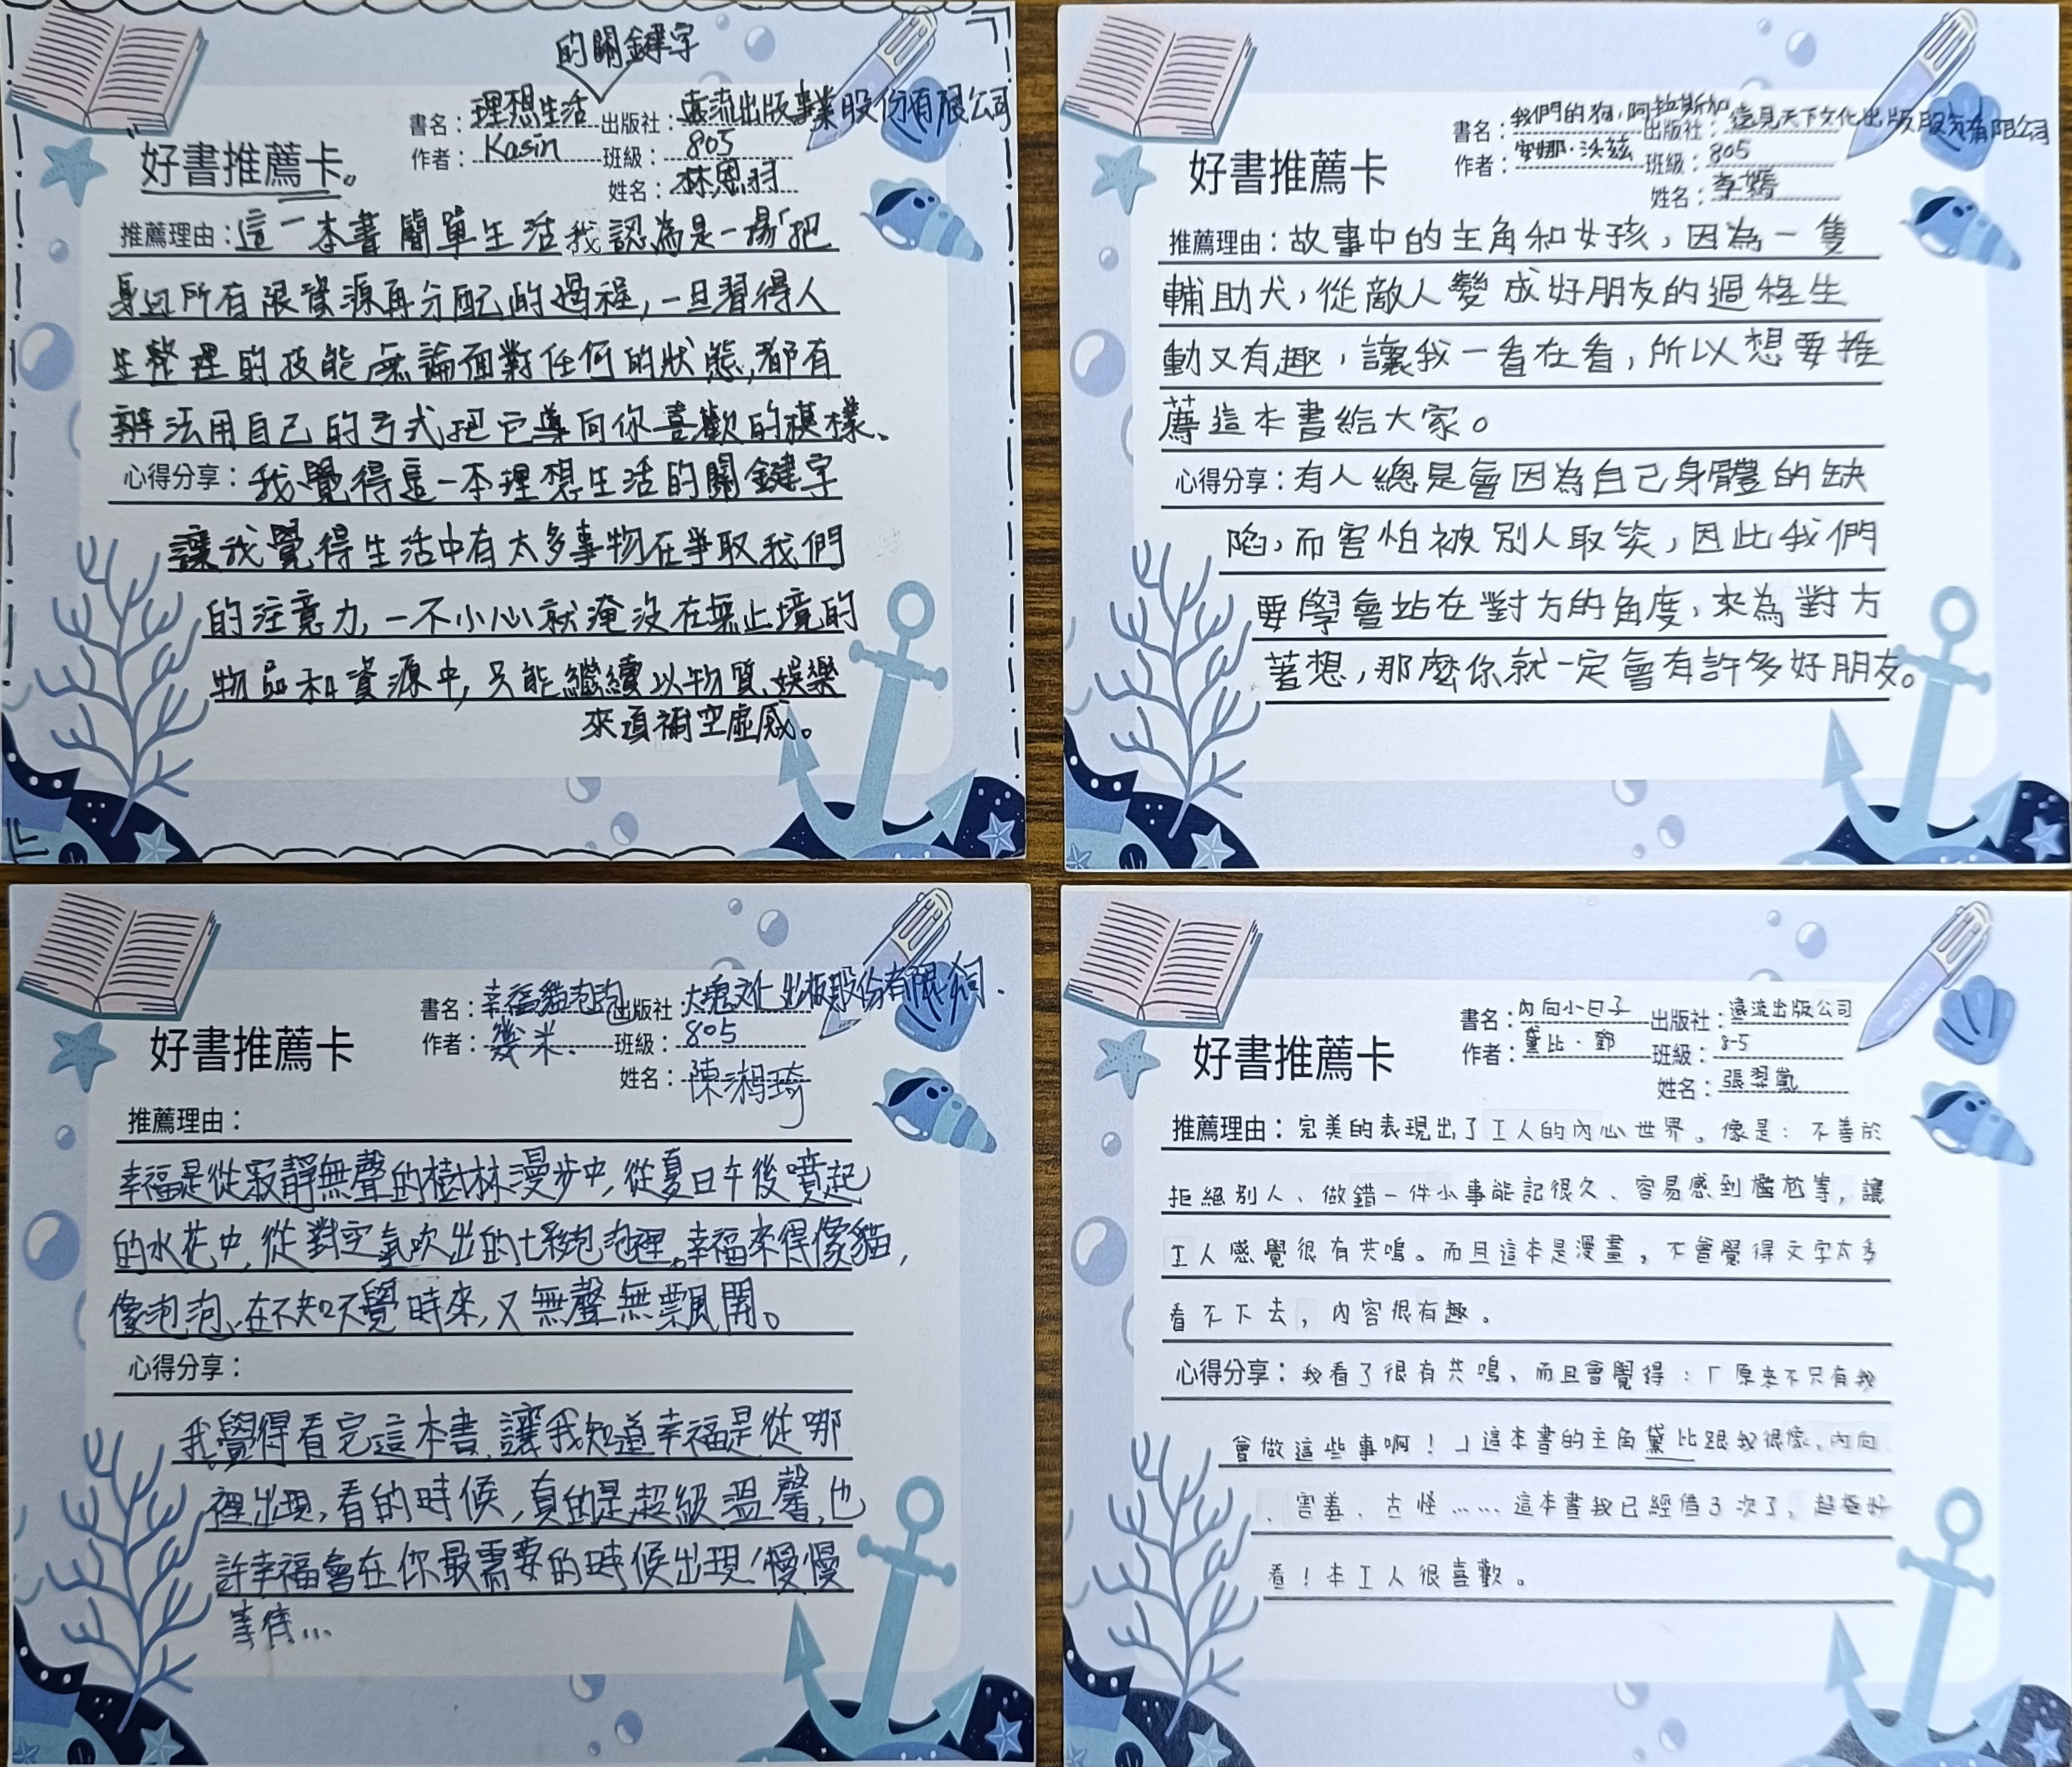 的關鍵字
書名：理想生活 出版社：遠流出版事業股份有限公司
作者：Kasin 班級：805
好書推薦卡。
姓名：林恩羽
推薦理由：這一本書簡單生活我認為是一場「把
身邊所有限資源再分配的過程,一旦習得人
生整理的技能無論面對任何的狀態,都有
辦法用自己的方式把它導向你喜歡的模樣、
心得分享：我覺得這一本理想生活的關鍵字
讓我覺得生活中有太多事物在爭取我們
的注意力,一不小心就淹沒在無止境的
物品和資源中,只能繼續以物質、娛樂
來填補空虛感。
書名：我們的狗,阿拉斯加 出版社：遠見天下文化出版股份有限公司
作者：安娜·沃茲 班級：805
好書推薦卡
姓名：李嫣
推薦理由：故事中的主角和女孩，因為一隻
輔助犬，從敵人變成好朋友的過程生
動又有趣，讓我一看在看，所以想要推
薦這本書給大家。
心得分享：有人總是會因為自己身體的缺
陷，而害怕被別人取笑，因此我們
要學會站在對方的角度，來為對方
著想，那麼你就一定會有許多好朋友。
書名：幸福貓泡泡 出版社：大塊文化出版股份有限公司.
作者：幾米. 班級：805
好書推薦卡
姓名：陳湘琦
推薦理由：
幸福是從寂靜無聲的樹林漫步中,從夏日午後噴起
的水花中,從對空氣吹出的七彩泡泡裡。幸福來得像貓,
像泡泡、在不知不覺時來,又無聲無飄開。
心得分享：
我覺得看完這本書,讓我知道幸福是從哪
裡出現,看的時候,真的是超級溫馨,也
許幸福會在你最需要的時候出現!慢慢
等待...
書名：內向小日子 出版社：遠流出版公司
作者：黛比·鄧 班級：8-5
好書推薦卡
姓名：張翠嵐
推薦理由：完美的表現出了I人的內心世界。像是：不善於
拒絕別人、做錯一件小事能記很久、容易感到尷尬等，讓
I人感覺很有共鳴。而且這本是漫畫，不會覺得文字太多
看不下去，內容很有趣。
心得分享：我看了很有共鳴、而且會覺得：「原來不只有我
會做這些事啊！」這本書的主角黛比跟我很像、內向
、害羞、古怪……這本書我已經借3次了，超極好
看！本I人很喜歡。